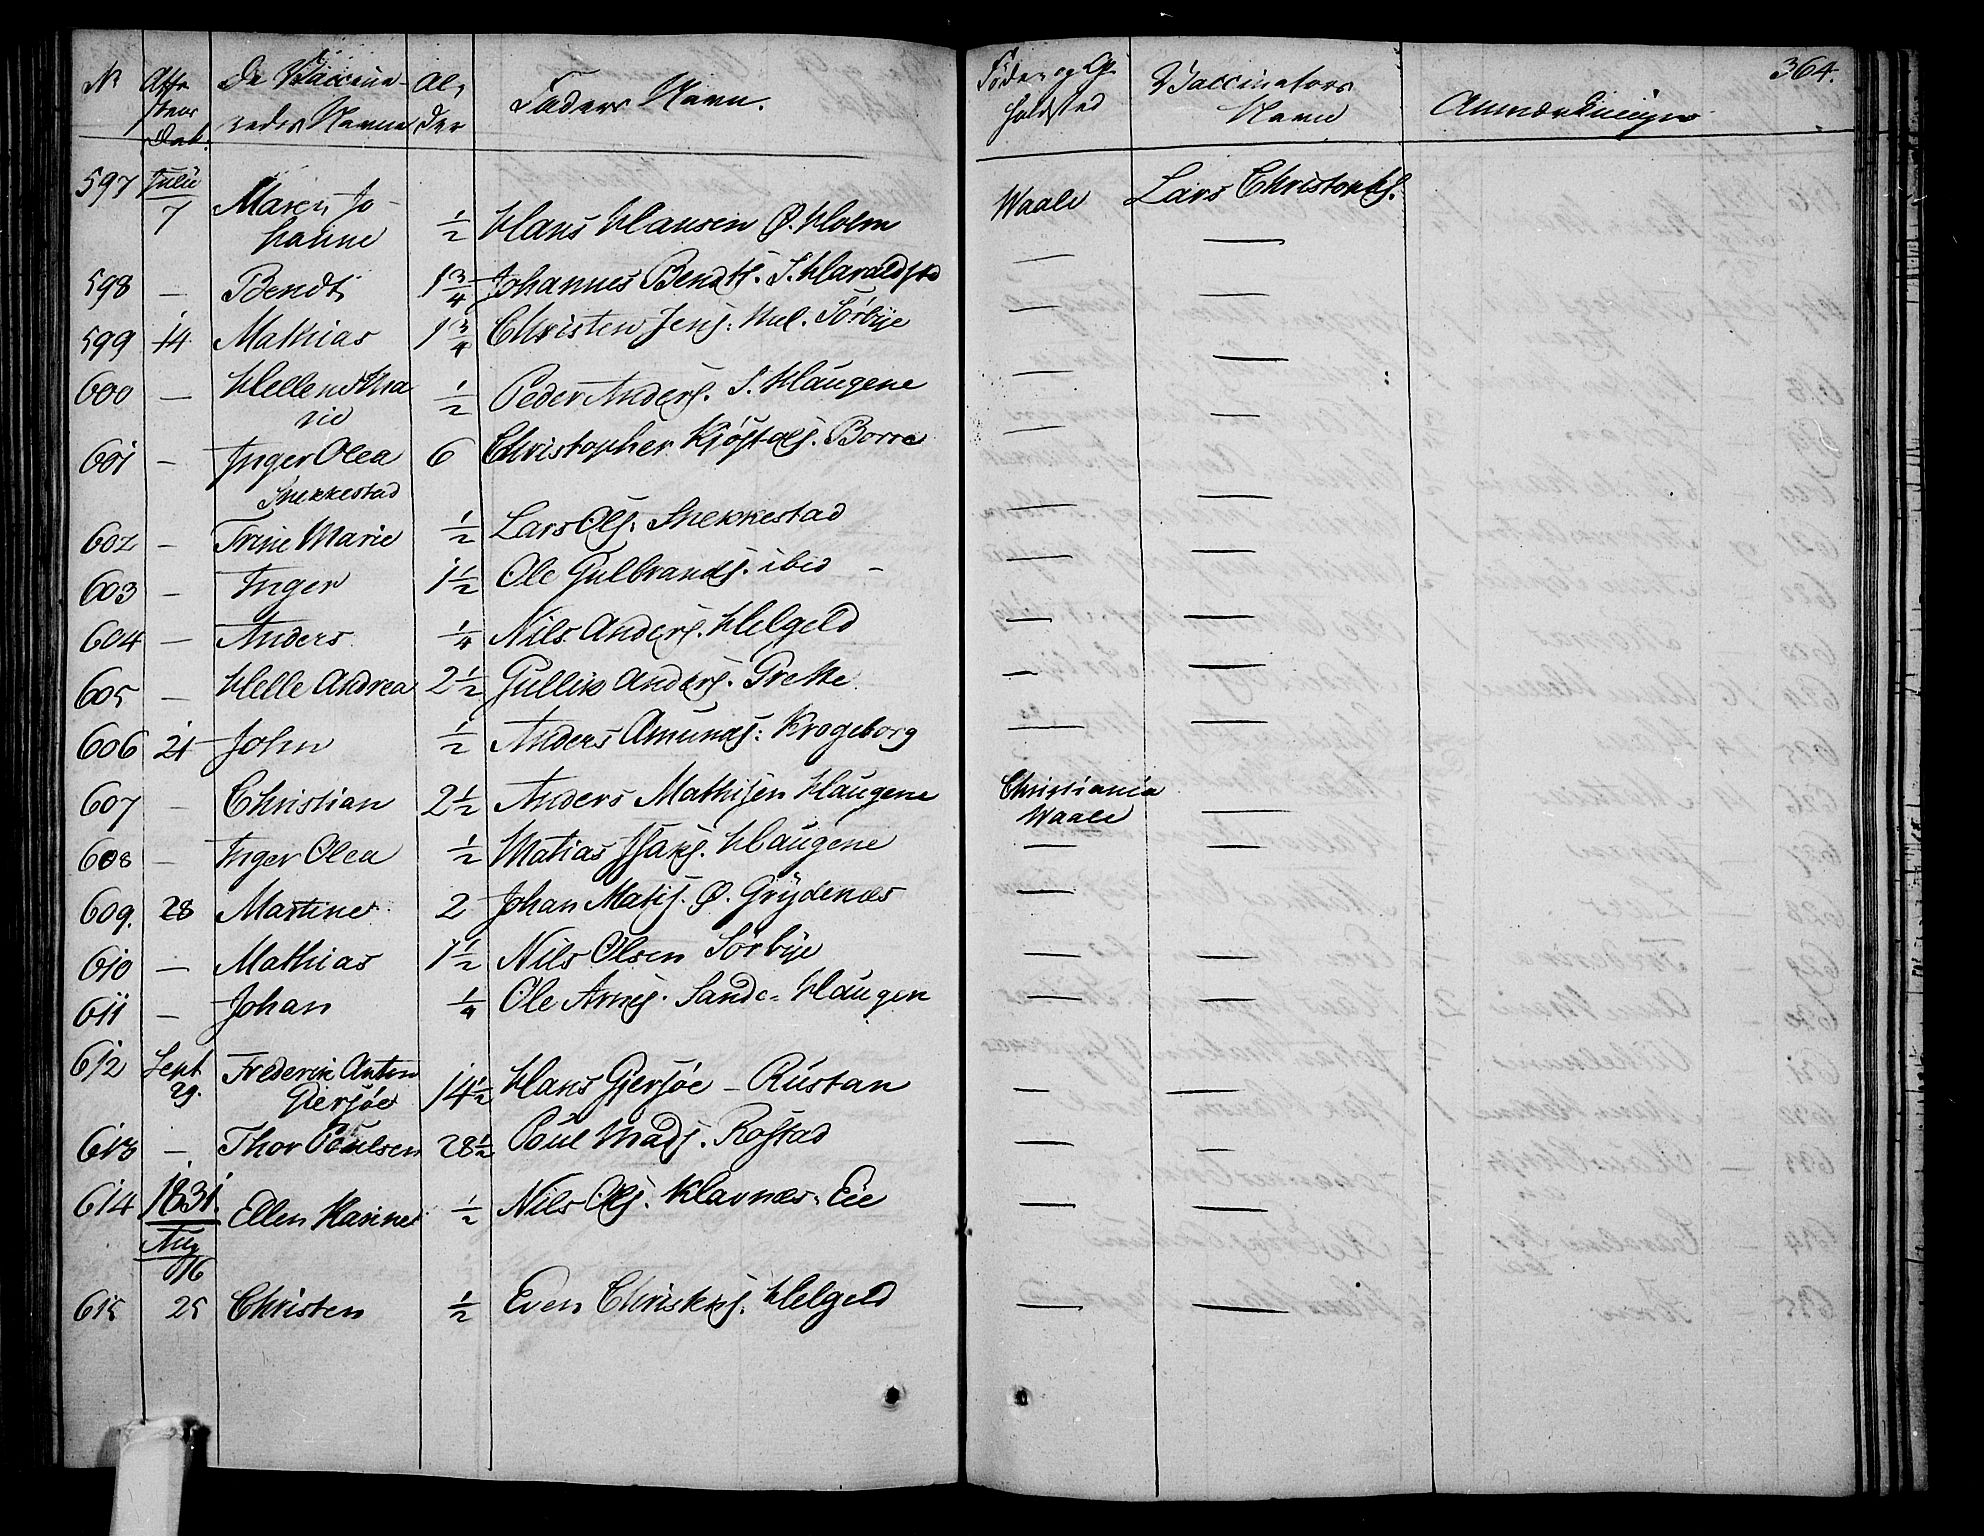 364.
Nr Atte- stens Dat. De Vaccine- redes Navne Al- der Faders Navn. Føde og Op- holdsted Vaccinators Navn Anmærkninger
597 Julii 7 Maren Jo- hanne ½ Hans Hansen Ø. Holm Waale Lars Christophs.
598 — Bendt 1¾ Johannes Bendts. S. Haraldstd — —
599 14 Mathias 1¾ Christen Jens: Sørbye — —
600 — Hellene Ma rie ½ Peder Anders. S. Haugene — —
601 — Inger Olea Snekkestad 6 Christopher Borre — —
602 - Trine Marie ½ Lars Ols. Snekkestad — —
603 — Inger 1½ Ole Gulbrands. ibid - — —
604 — Anders ¼ Nils Anders. Helgeld — —
605 — Helle Andrea 2½ Gullik Anders. Grette — —
606 21 John ½ Anders Amunds: Krogeborg — —
607 - Christian 2½ Anders Mathisen Haugene Christiania Waale —
608 — Inger Olea ½ Matias Isaks. Haugene — —
609. 28 Martine 2 Johan Matis. Ø. Grydenæs —
610 — Mathias 1½ Nils Olsen Sørbye — —
611 — Johan ¼ Ole Arnes. Sande- Haugen — —
612 Sept 29. Frederik Anton Giersøe 14½ Hans Gjersøe - Rustan — —
613 — Thor Poulsen 28½ Poul Mads. Rostad — —
614 1831. Aug 16 Ellen Karine ½ Nils Ols. Klavnæs- Eie — —
615 25 Christen ½ Even Helgeld — —